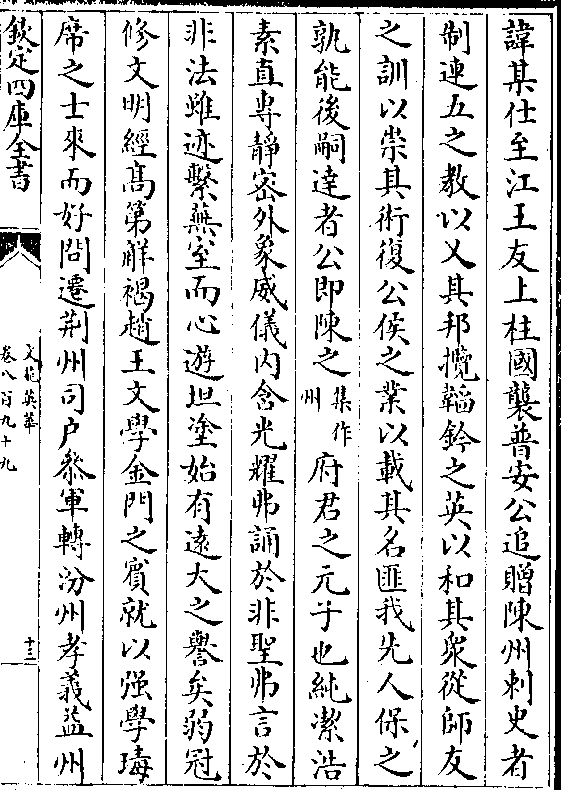 諱某仕至江王友上柱國襲普安公追贈陳州刺史者
制連五之教以乂其邦攬韜鈐之英以和其衆從師友
之訓以崇其術復公侯之業以載其名匪我先人保之
孰能後嗣達者公即陳之集作州府君之元子也純潔浩
素直専靜宻外象威儀内含光耀弗誦於非聖弗言於
非法雖迹繫蕪室而心遊坦塗始有逺大之譽矣弱冠
修文明經髙第解褐趙王文學金門之賓就以强學瑇
席之士來而好問遷荆州司户叅軍轉汾州孝義益州
欽定四庫全書
文苑英華
卷八百九十九
十三